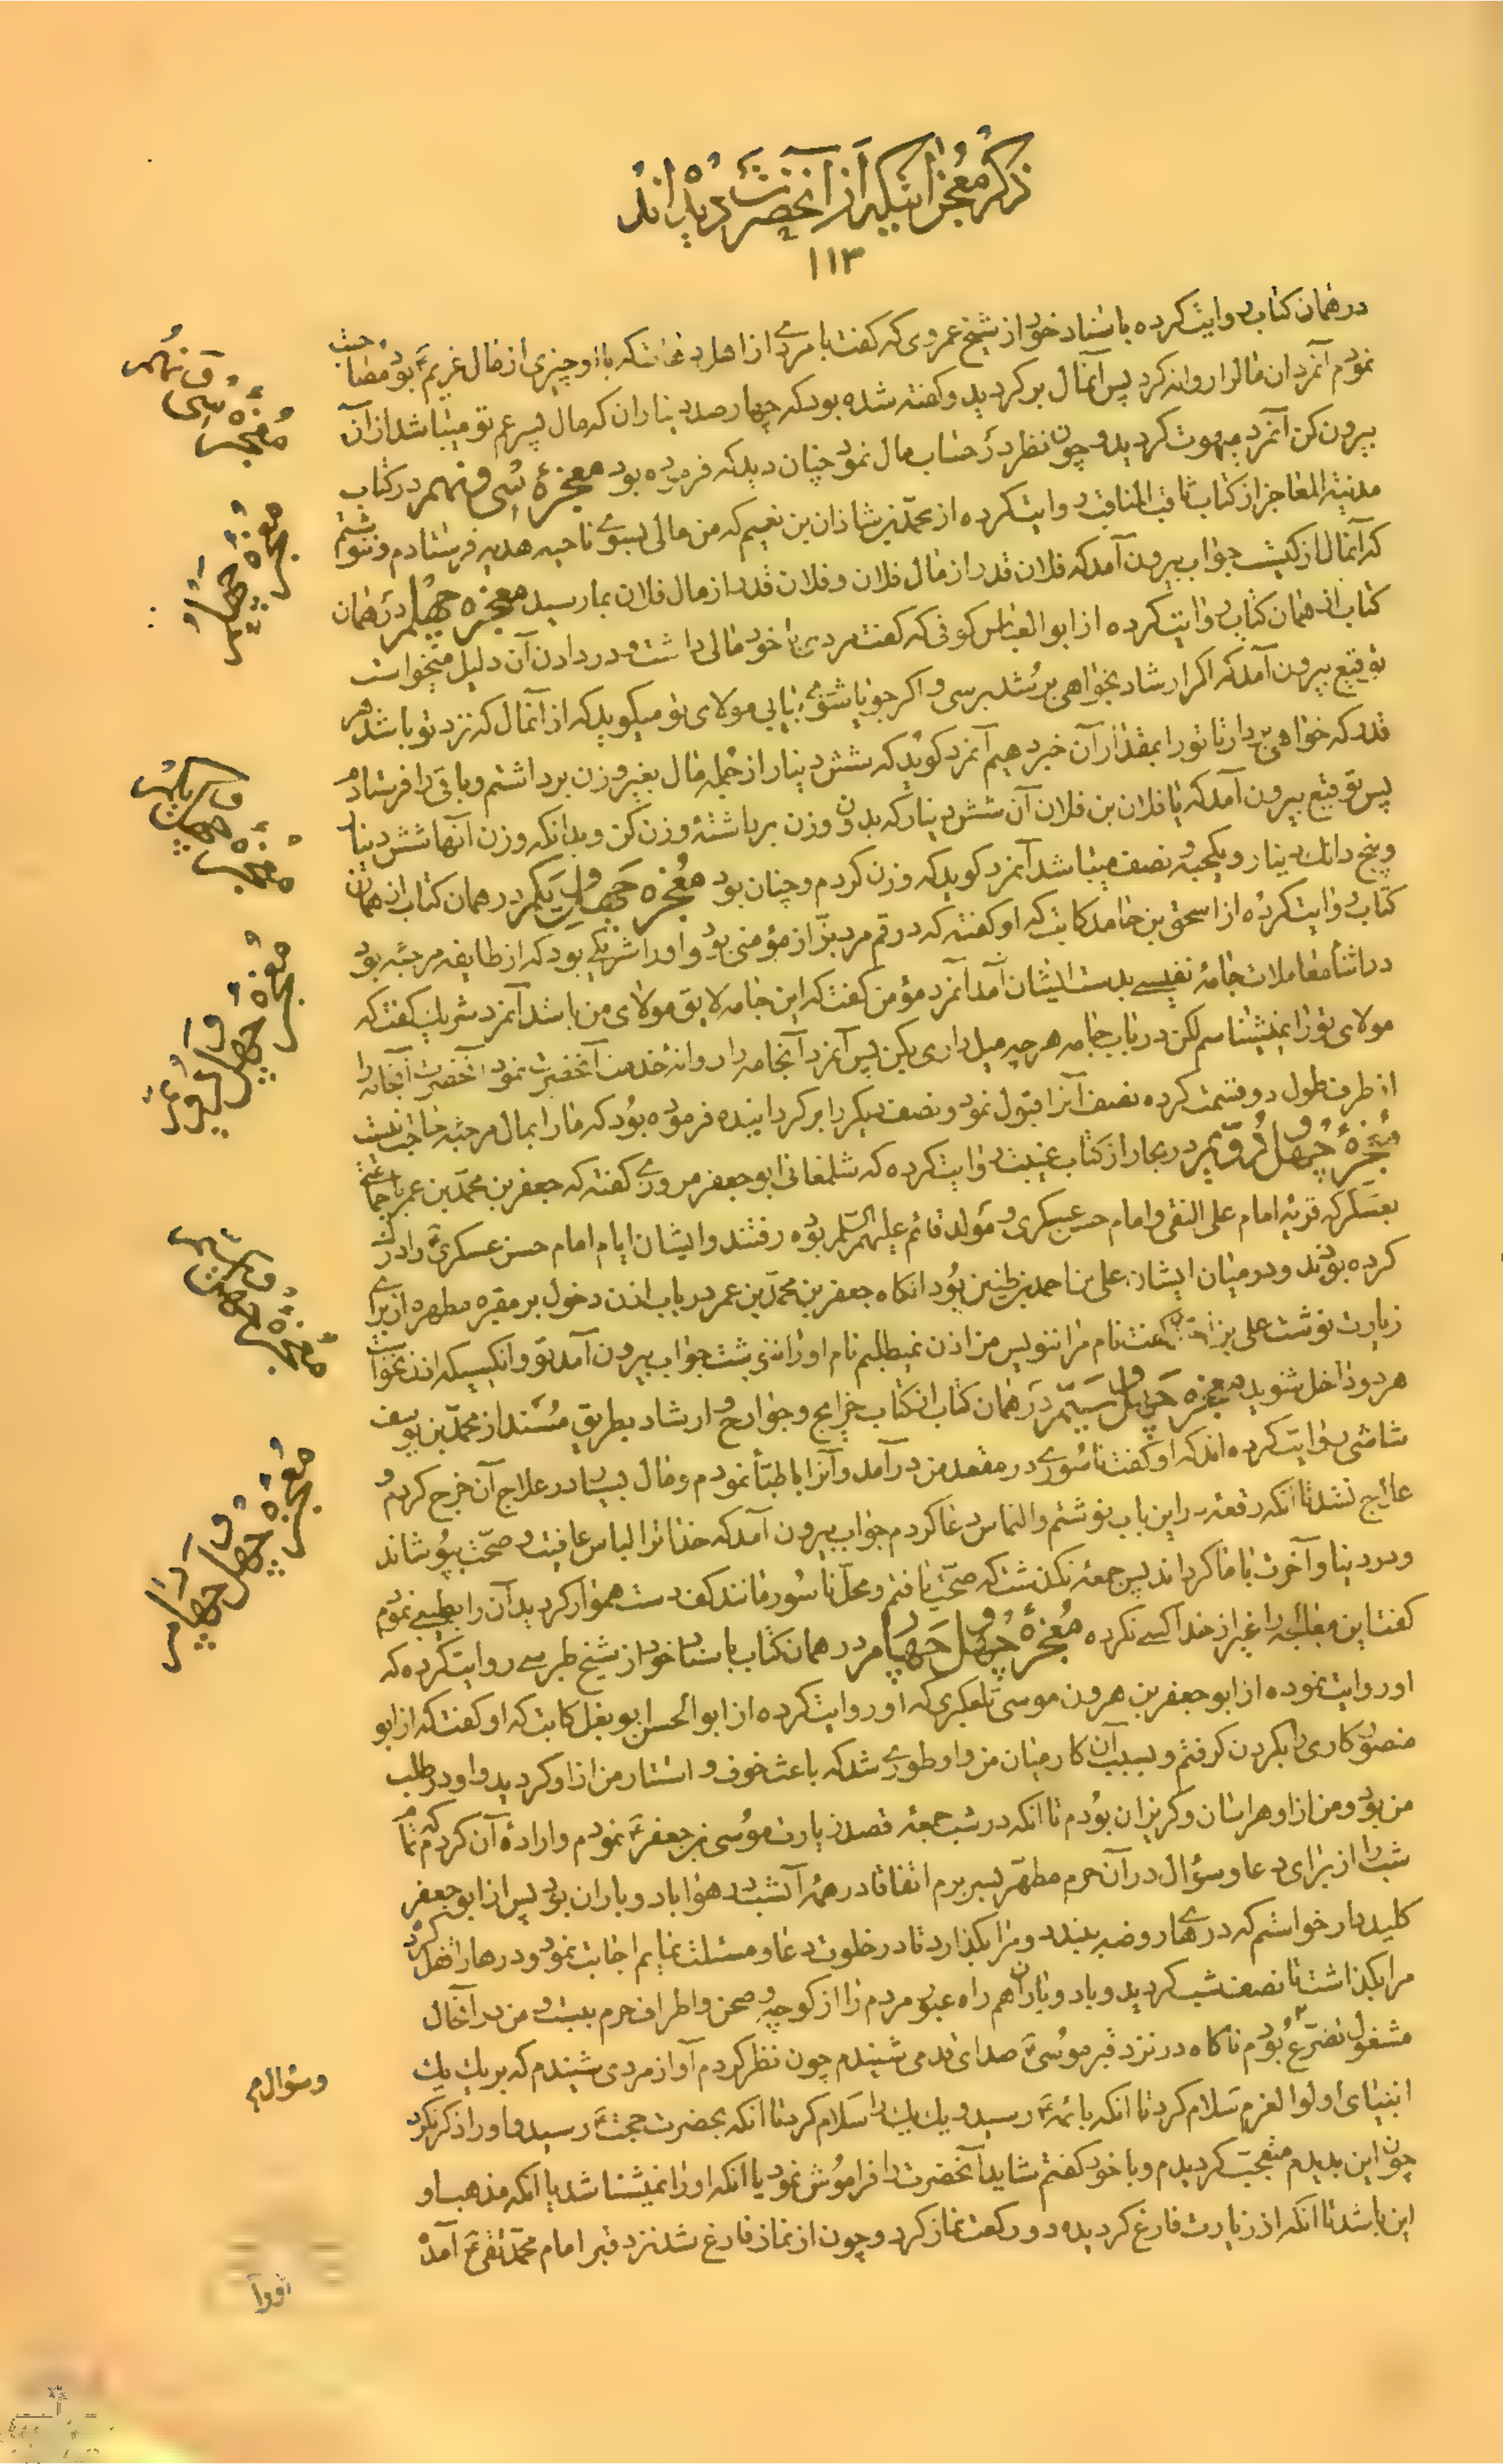 ذکر معجزاتیکه از آنحضرت دیده اند
۱۱۳
در همان کتاب روایت کرده باسناد خود از شیخ عمروی که گفت با مردی از اهل که با او چیزی از مال غریم ع بود مصاحبت
نمودم آنمرد آن مال را روانه کرد پس آنمال برگردید و گفته شده بود که چهار صد دینار آن که مال پسر عم تو میباشد از آن
بیرون کن آنمرد مبهوت گردید و چون نظر در حساب مال نمود چنان دید که فرموده بود معجزه سی و نهم در کتاب
مدینة المعاجز از کتاب ثاقب المناقب روایت کرده از محمد بن شاذان بن نعیم که من مالی بسوی ناحیه هدیه فرستادم و ننوشتم
که آنمال از کیست جواب بیرون آمد که فلان قدر از مال فلان و فلان قدر از مال فلان بما رسید معجزه چهلم در همان
کتاب از همان کتاب روایت کرده از ابو العباس کوفی که گفت مردی با خود مالی داشت و در دادن آن دلیل میخواست
توقیع بیرون آمد که اگر ارشاد بخواهی برشد برسی و اگر جویا شوی بیابی مولای تو میگوید که از آنمال که نزد تو باشد هر
قدر که خواهی بردار تا تو را بمقدار آن خبر دهیم آنمرد گوید که شش دینار از جمله مال بغیر وزن برداشتم و باقی را فرستادم
پس توقیع بیرون آمد که یا فلان بن فلان آن شش دینار که بدون وزن برداشته وزن کن و بدانکه وزن آنها شش دینار
و پنج دانک دینار و یکحبه و نصف میباشد آنمرد گوید که وزن کردم و چنان بود معجزه چهل و یکم در همان کتاب از همان
کتاب روایت کرده از اسحق بن حامد کاتب که او گفته که در قم مرد بزاز مؤمنی بود و او را شریکی بود که از طایفه مرجئه بود
در اثنا معاملات جامه نفیسی بدست ایشان آمد آنمرد مؤمن گفت که این جامه لایق مولای من باشد آنمرد شریک گفت که
مولای تو را نمیشناسم لکن در باب جامه هر چه میل داری بکن پس آنمرد آنجامه را روانه خدمت آنحضرت نمود آنحضرت آنجامه را
از طرف طول دو قسمت کرده نصف آنرا قبول نمود و نصف دیگر را برگردانیده فرموده بود که ما را بمال مرجئه حاجت نیست
معجزه چهل و دویم در بحار از کتاب غیبت روایت کرده که شلمغانی ابو جعفر مروزی گفته که جعفر بن محمد بن عمر با جماعتی
بعسکر که قریه امام علی النقی و امام حسن عسکری و مولد قائم علیهم السلم بوده رفتند و ایشان ایام امام حسن عسکری ع را درک
کرده بودند و در میان ایشان علی بن احمد بن طنین بود آنگاه جعفر بن محمد بن عمر در باب اذن دخول بر مقبره مطهره از برای
زیارت نوشت علی بن گفت نام مرا ننویس من اذن نمیطلبم نام او را ننوشت جواب بیرون آمد تو و آنکسیکه اذن نخواست
هر دو داخل شوید معجزه چهل و سیم در همان کتاب از کتاب خرایج و جوارح و ارشاد بطریق مسند از محمد بن یوسف
شاشی روایت کرده اند که او گفت ناسوری در مقعد من درآمد و آنرا باطبّا نمودم و مال بسیار در علاج آن خرج کردم و
علاج نشد تا آنکه رقعه در این باب نوشتم و التماس دعا کردم جواب بیرون آمد که خدا ترا لباس عافیت و صحت بپوشاند
و در دنیا و آخرت با ما گرداند پس جمعه نگذشت که صحت یافتم و محل ناسور مانند کف دست هموار گردید آن را بطبیبی نمودم
گفت این معالجه را غیر از خدا کسی نکرده معجزه چهل و چهارم در همان کتاب باسناد خود از شیخ طبرسی روایت کرده که
او روایت نموده از ابو جعفر بن هرون موسی تلعکبری که او روایت کرده از ابو الحسن ابو بغل کاتب که او گفت که از ابو
منصور کاری را بگردن گرفتم و بسبب آن کار میان من و او طوری شد که باعث خوف و استتار من از او گردید و او در طلب
من بود و من از او هراسان و گریزان بودم تا آنکه در شب جمعه قصد زیارت موسی بن جعفر ع نمودم و اراده آن کردم که تمام
شب را از برای دعا و سؤال در آن حرم مطهر بسر برم اتفاقا در همه آنشب در هوا باد و باران بود پس از ابو جعفر
کلیددار خواستم که درهای روضه ببندد و مرا بگذارد تا در خلوت دعا و مسئلت نمایم اجابت نمود و درها را قفل کرد
مرا بگذاشت تا نصف شب گردید و باد و باران هم راه عبور مردم را از کوچه و صحن و اطراف حرم ببست و من در آنحال
مشغول تضرع بودم ناگاه در نزد قبر موسی ع صدای قدمی شنیدم چون نظر کردم آواز مردی شنیدم که بر یک یک
انبیای اولوا العزم سلام کرد تا آنکه بائمه ع رسید و یک یک را سلام کرد تا آنکه بحضرت حجت ع رسید و او را ذکر نکرد
چون این بدیدم متعجب گردیدم و با خود گفتم شاید آنحضرت را فراموش نمود یا آنکه او را نمیشناسد یا آنکه مذهب او
این باشد تا آنکه از زیارت فارغ گردیده دو رکعت نماز کرد و چون از نماز فارغ شد نزد قبر امام محمد تقی ع آمد
معجزه سی و نهم
معجزه چهلم
معجزه چهل و یکم
معجزه چهل و دویم
معجزه چهل و سیم
معجزه چهل و چهارم
و سؤال م